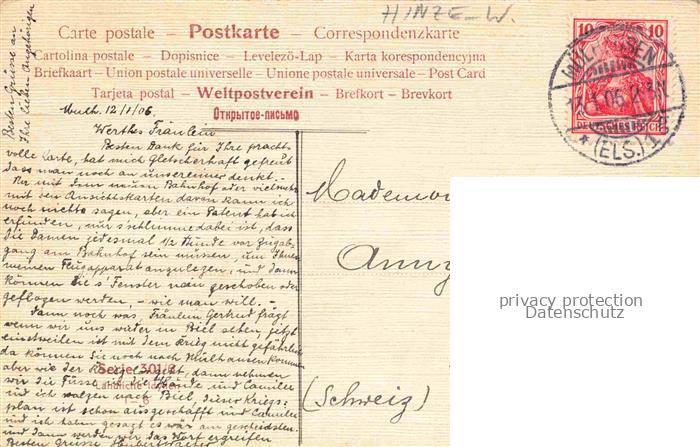 HINZE-W.
Carte postale – Postkarte – Correspondenzkarte
Cartolina postale – Dopisnice – Levelező-Lap – Karta korespondencyjna
Briefkaart – Union postale universelle – Unione postale universale – Post Card
Tarjeta postal – Weltpostverein – Brefkort – Brevkort
Открытое-письмо
10 10
DEUTSCHES REICH
MÜLHAUSEN
1.06. 2
(ELS.) 1
Besten Grüsse an
Ihre lieben Angehörigen
Mulh. 12/1/06.
Werthes Fräulein
Besten Dank für Ihre pracht
volle Karte, hat mich gefreut
dass man noch an unsereiner denkt.-
Per mit dem neuen Bahnhof oder vielmehr
mit den Ansichtskarten davon kann ich
noch nichts sagen, aber ein Patent hab ich
erfunden, nur s'schlimme dabei ist, dass
die Damen jedesmal 1/2 Stunde vor Zugab-
gang am Bahnhof sein müssen, um Ihnen
meinen Flugapparat anzulegen, und dann
können Sie s'Fenster nein geschoben oder
geflogen werden, – wie man will. –
Dann noch was, Fräulein Gertrud frägt
wenn wir uns wieder in Biel sehen, jetzt
einstweilen ist mit dem Krieg nicht gefährlich
da können Sie noch nach Mülhausen kommen
aber wie der Krieg angeht, dann nehmen
wir die Füsse in die Hände und Camille
und ich walzen nach Biel, dieser Kriegs-
plan ist schon ausgeschafft und Camille
und ich haben gesagt es war am gescheidsten
und dann werden wir das Wort ergreifen
Besten Grüsse
Serie 301/2
Ländliche
1-6
Mademoi
Anny
(Schweiz)
privacy protection
Datenschutz